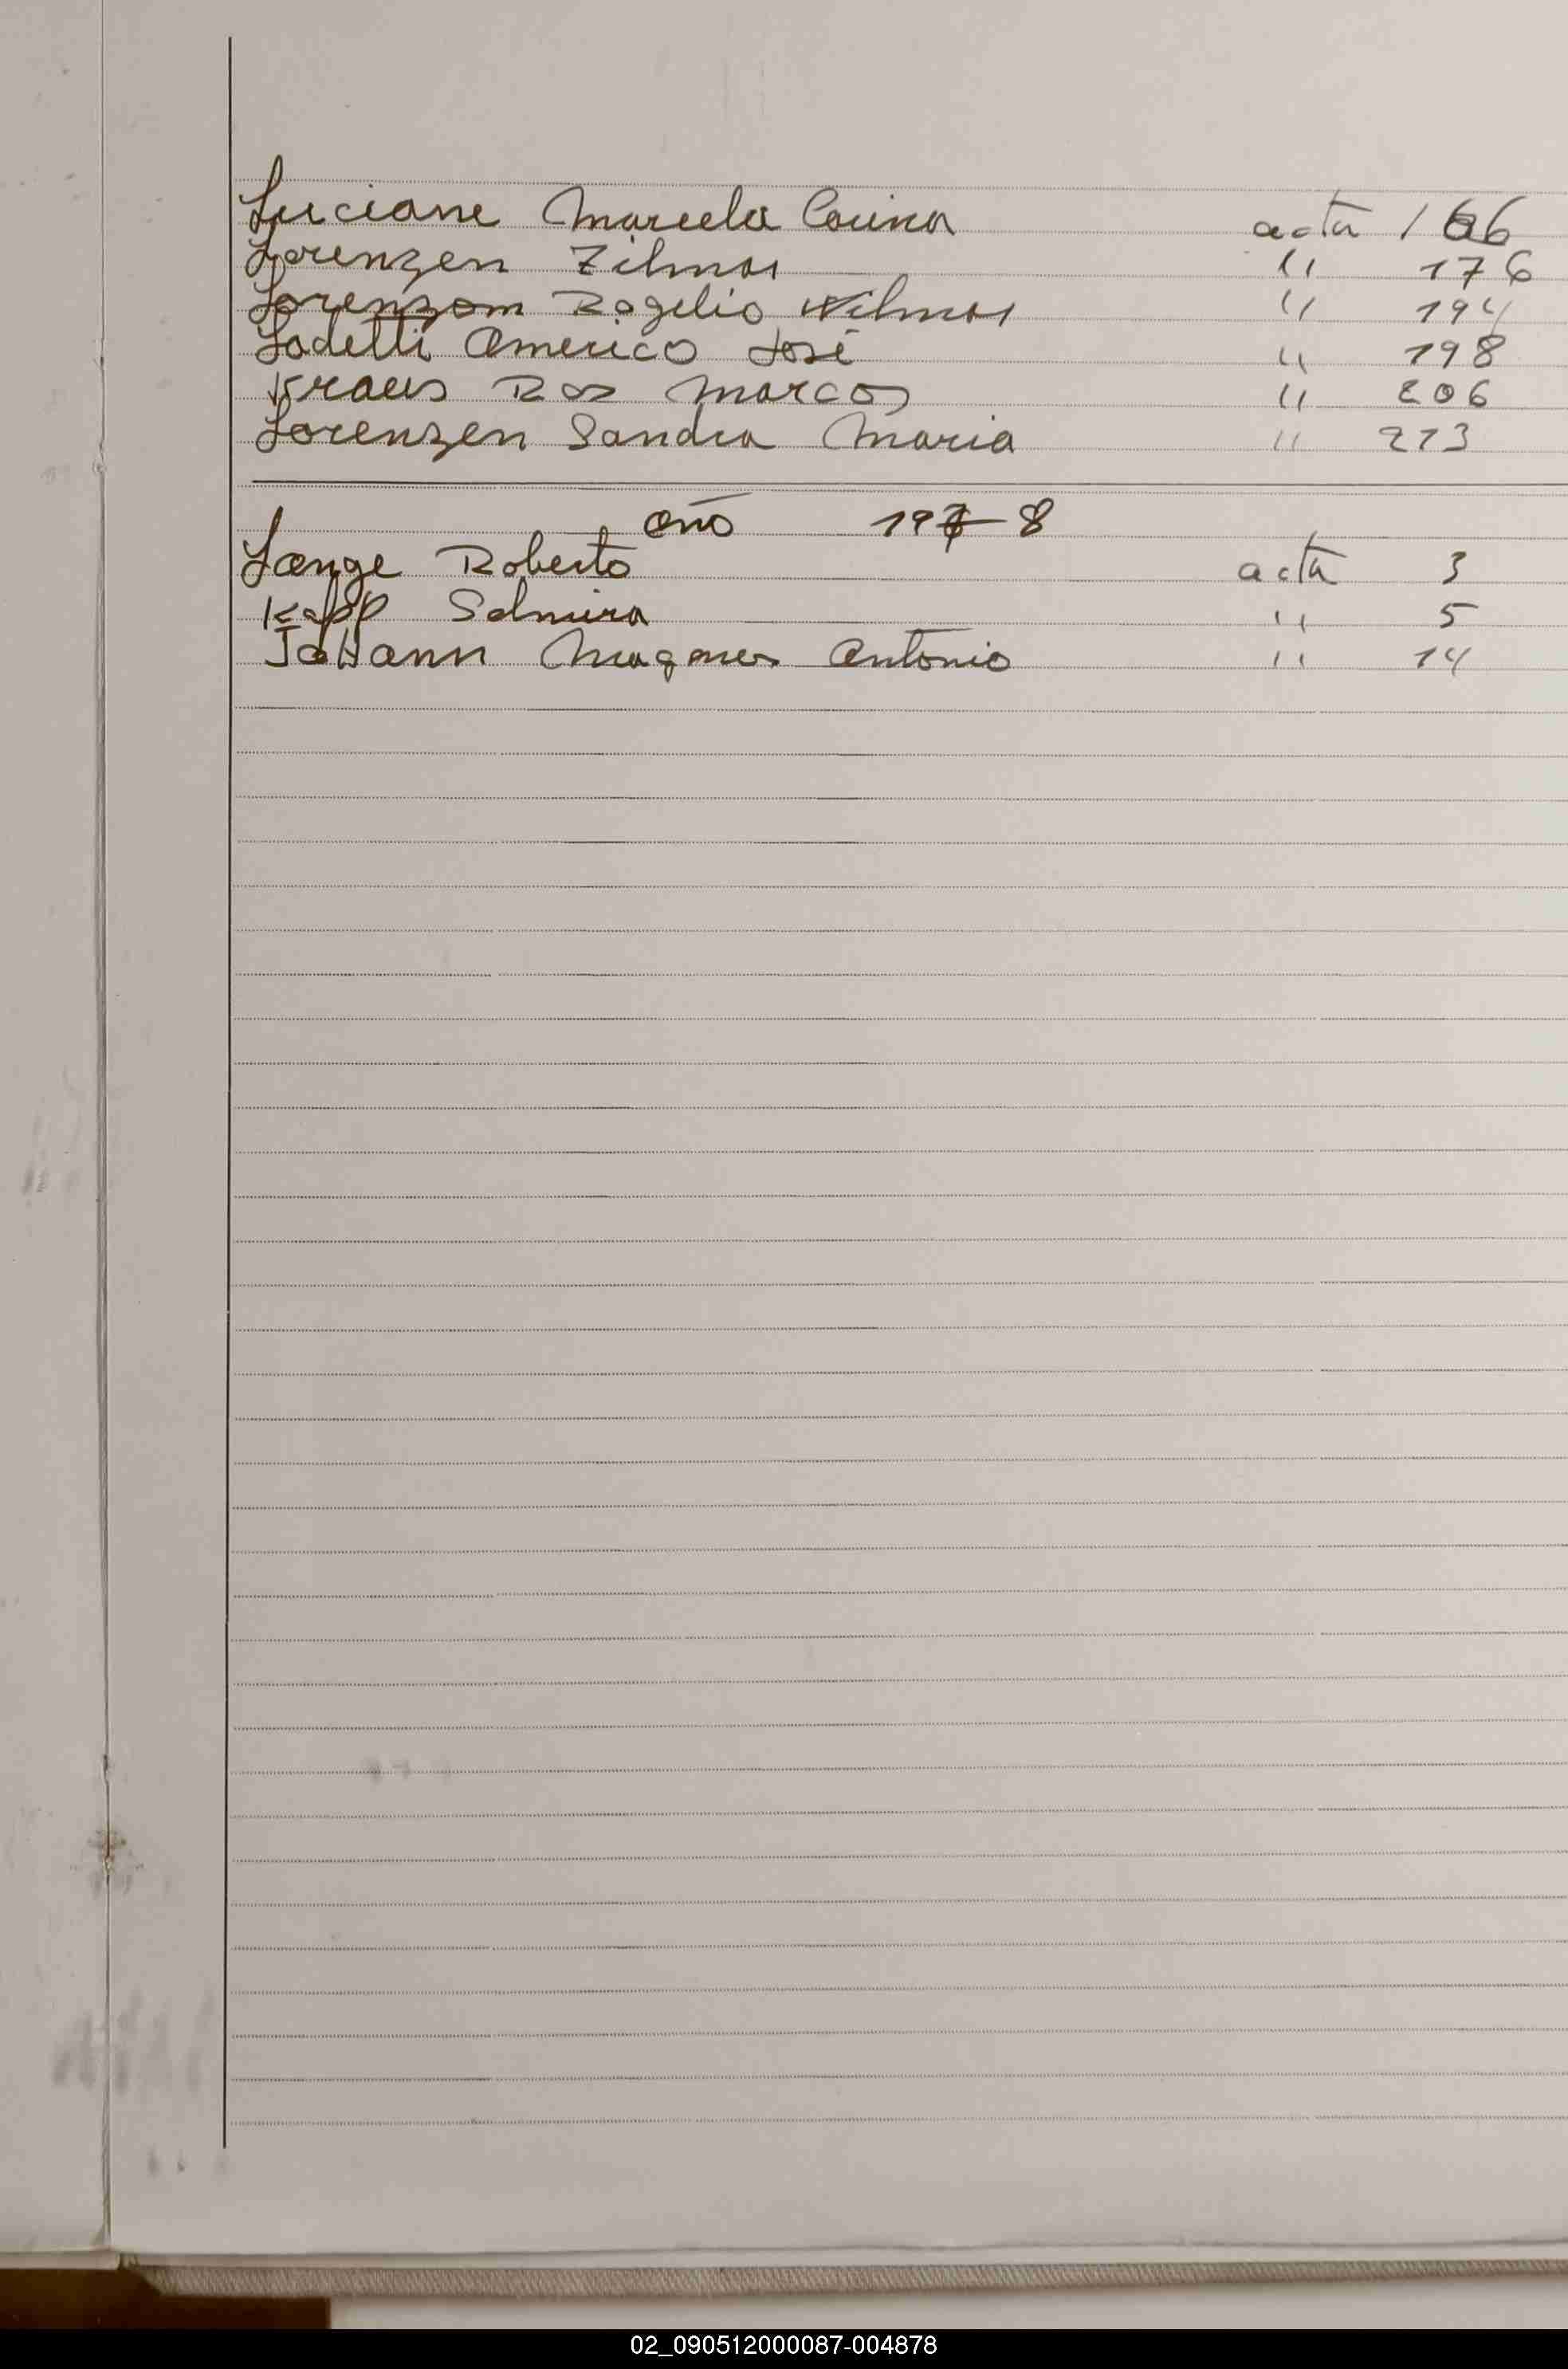 Luciane Marcela Carina acta 166
Lorenzen Zilmar " 176
Lorenzom Rogelio Wilmar " 194
Ladetti Americo José " 198
Kraus Marcos " 206
Lorenzen Sandra Maria " 213
año 197 8
Lange Roberto acta 3
Kapp Selmira " 5
JoHann Antonio " 14
02_090512000087-004878